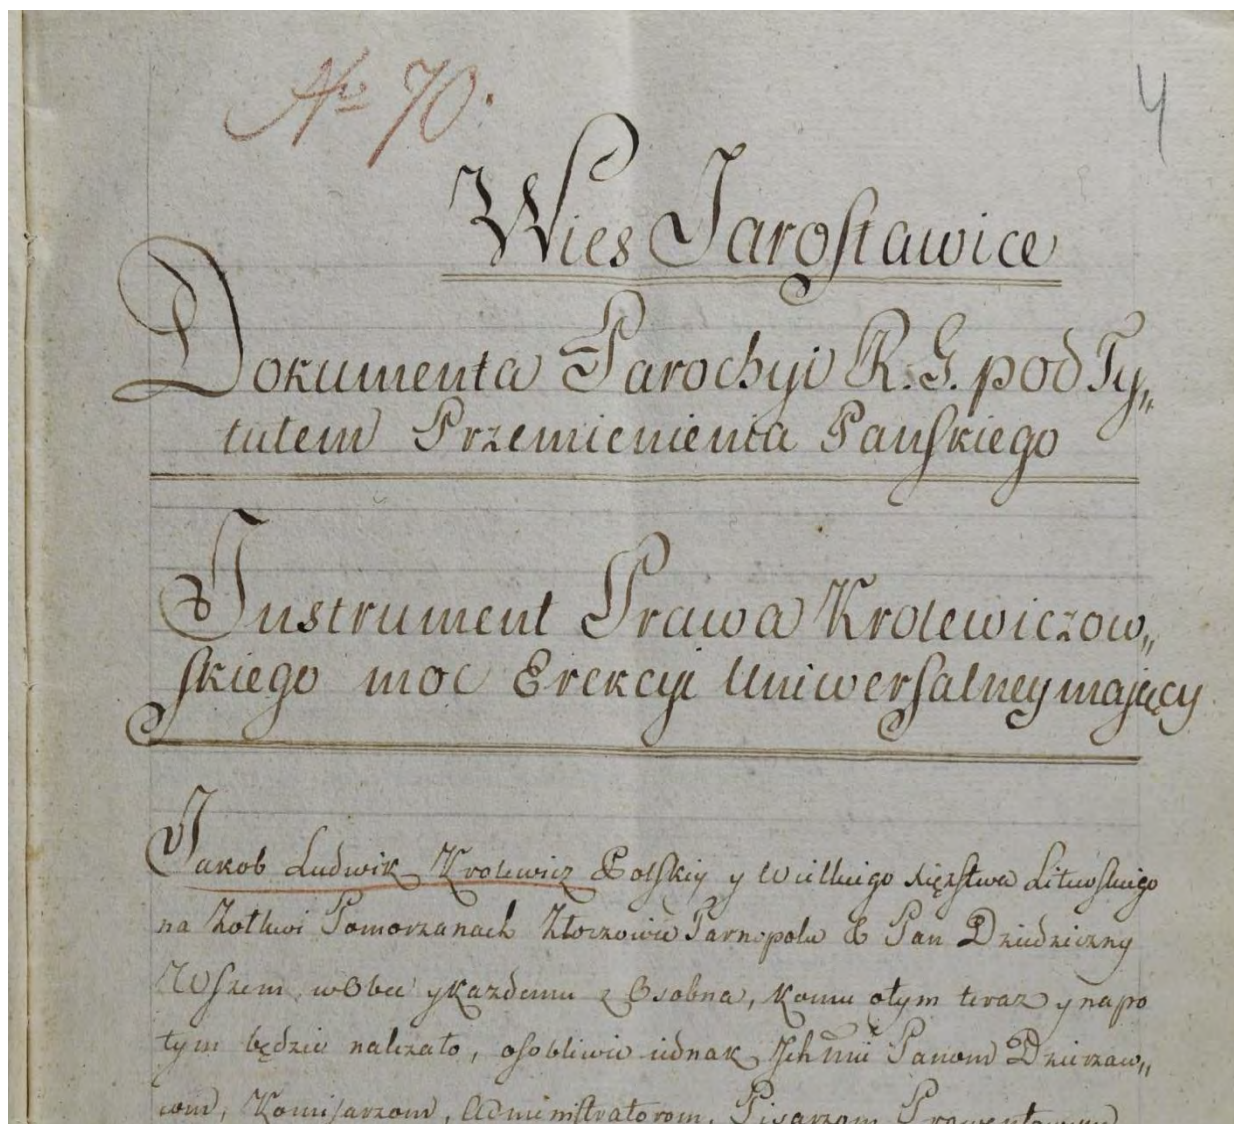 No 70.
4
Wies Jarosławice
Dokumenta Parochyi R. G. pod Ty„
tułem Przemienienia Pańskiego
Instrument Prawa Krolewiczow„
skiego moc Erekcyi Uniwersalney mający
Jakob Ludwik Krolewicz Polskiy y Wielkiego Xięstwa Litewskiego
na Żołkwi Pomorzanach Złoczowie Tarnopolu & Pan Dziedziczny
Wszem wobec y każdemu z Osobna, komu o tym teraz y napo
tym będzie należało, osobliwie iednak Ichmć Panom Dzierzaw„
com, Komisarzom, Administratorom, Pisarzom Prowentowym